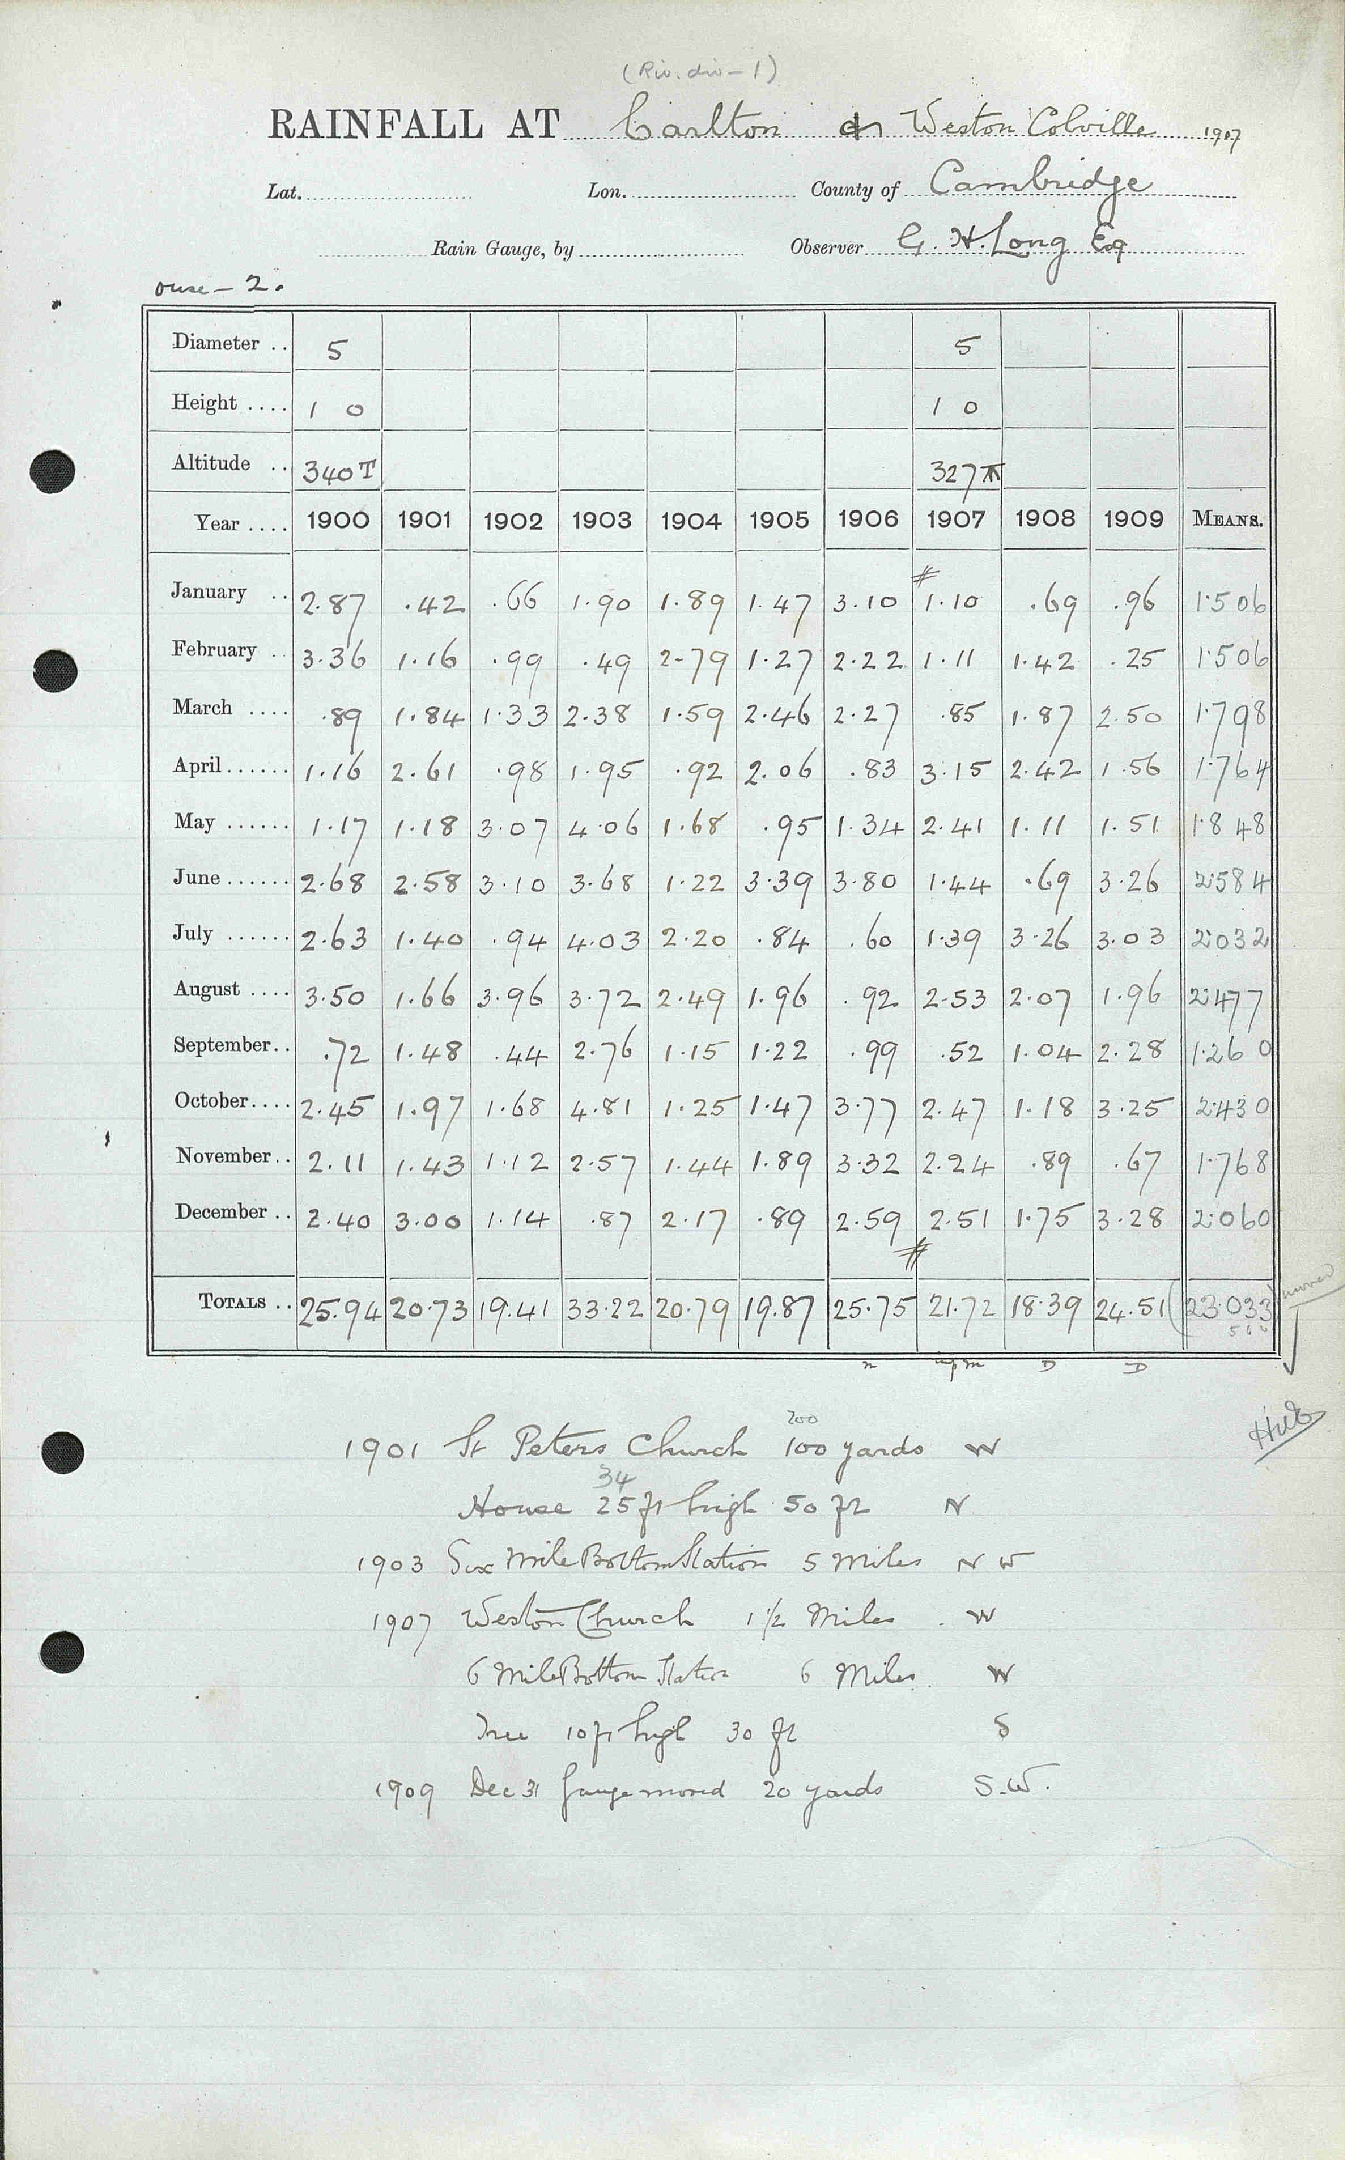 (Riv. div - 1)
RAINFALL AT Carlton & Weston Colville 1907
Lat. Lon. County of Cambridge
Rain Gauge, by Observer G. H. Long Esq
ouse - 2.
Diameter .. 5 5
Height .... 1 0 1 0
Altitude .. 340T 327
Year .... 1900 1901 1902 1903 1904 1905 1906 1907 1908 1909 MEANS.
#
January .. 2.87 .42 .66 1.90 1.89 1.47 3.10 1.10 .69 .96 1.506
February .. 3.36 1.16 .99 .49 2.79 1.27 2.22 1.11 1.42 .25 1.506
March .... .89 1.84 1.33 2.38 1.59 2.46 2.27 .85 1.87 2.50 1.798
April...... 1.16 2.61 .98 1.95 .92 2.06 .83 3.15 2.42 1.56 1.764
May ...... 1.17 1.18 3.07 4.06 1.68 .95 1.34 2.41 1.11 1.51 1.848
June...... 2.68 2.58 3.10 3.68 1.22 3.39 3.80 1.44 .69 3.26 2.584
July ...... 2.63 1.40 .94 4.03 2.20 .84 .60 1.39 3.26 3.03 2.032
August .... 3.50 1.66 3.96 3.72 2.49 1.96 .92 2.53 2.07 1.96 2.477
September.. .72 1.48 .44 2.76 1.15 1.22 .99 .52 1.04 2.28 1.260
October.... 2.45 1.97 1.68 4.81 1.25 1.47 3.77 2.47 1.18 3.25 2.430
November.. 2.11 1.43 1.12 2.57 1.44 1.89 3.32 2.24 .89 .67 1.768
December .. 2.40 3.00 1.14 .87 2.17 .89 2.59 2.51 1.75 3.28 2.060
#
TOTALS .. 25.94 20.73 19.41 33.22 20.79 19.87 25.75 21.72 18.39 24.51 (23.033
D D
200
1901 St Peters Church 100 yards W
34
House 25 ft high 50 ft N
1903 Six Mile Bottom Station 5 Miles N W
1907 Weston Church 1½ Miles W
6 Mile Bottom Station 6 Miles W
Tree 10 ft high 30 ft S
1909 Dec 31 Gauge moved 20 yards S.W.